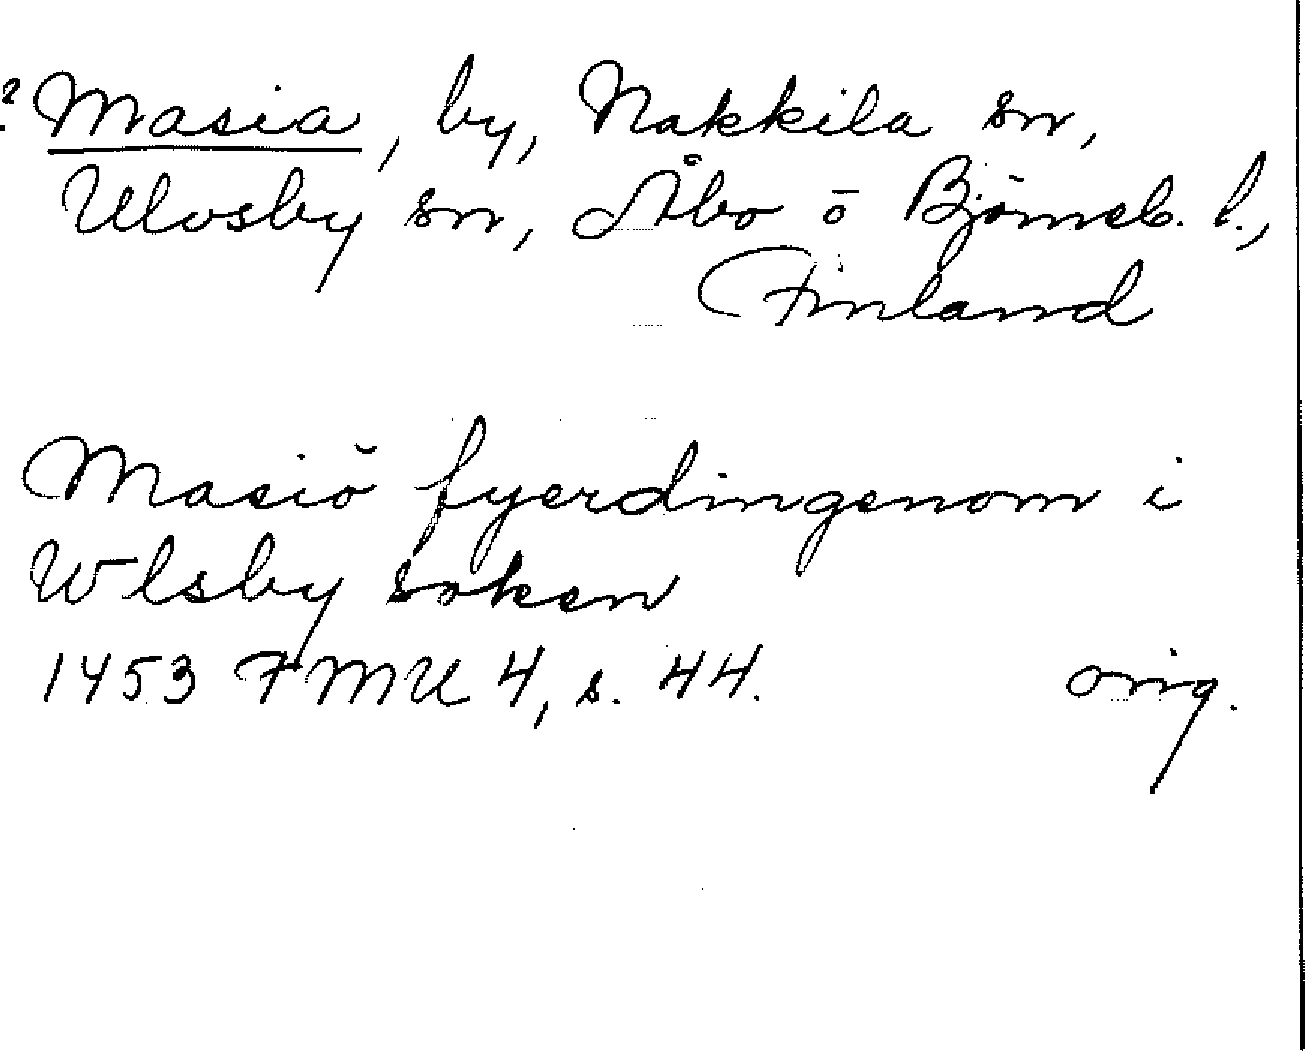 ? Masia, by, Nakkila sn,
Ulvsby sn, Åbo o Björneb. l.,
Finland
Masiŏ fyerdingenom i
Wlsby soken
1453 FMU 4, s. 44. orig.